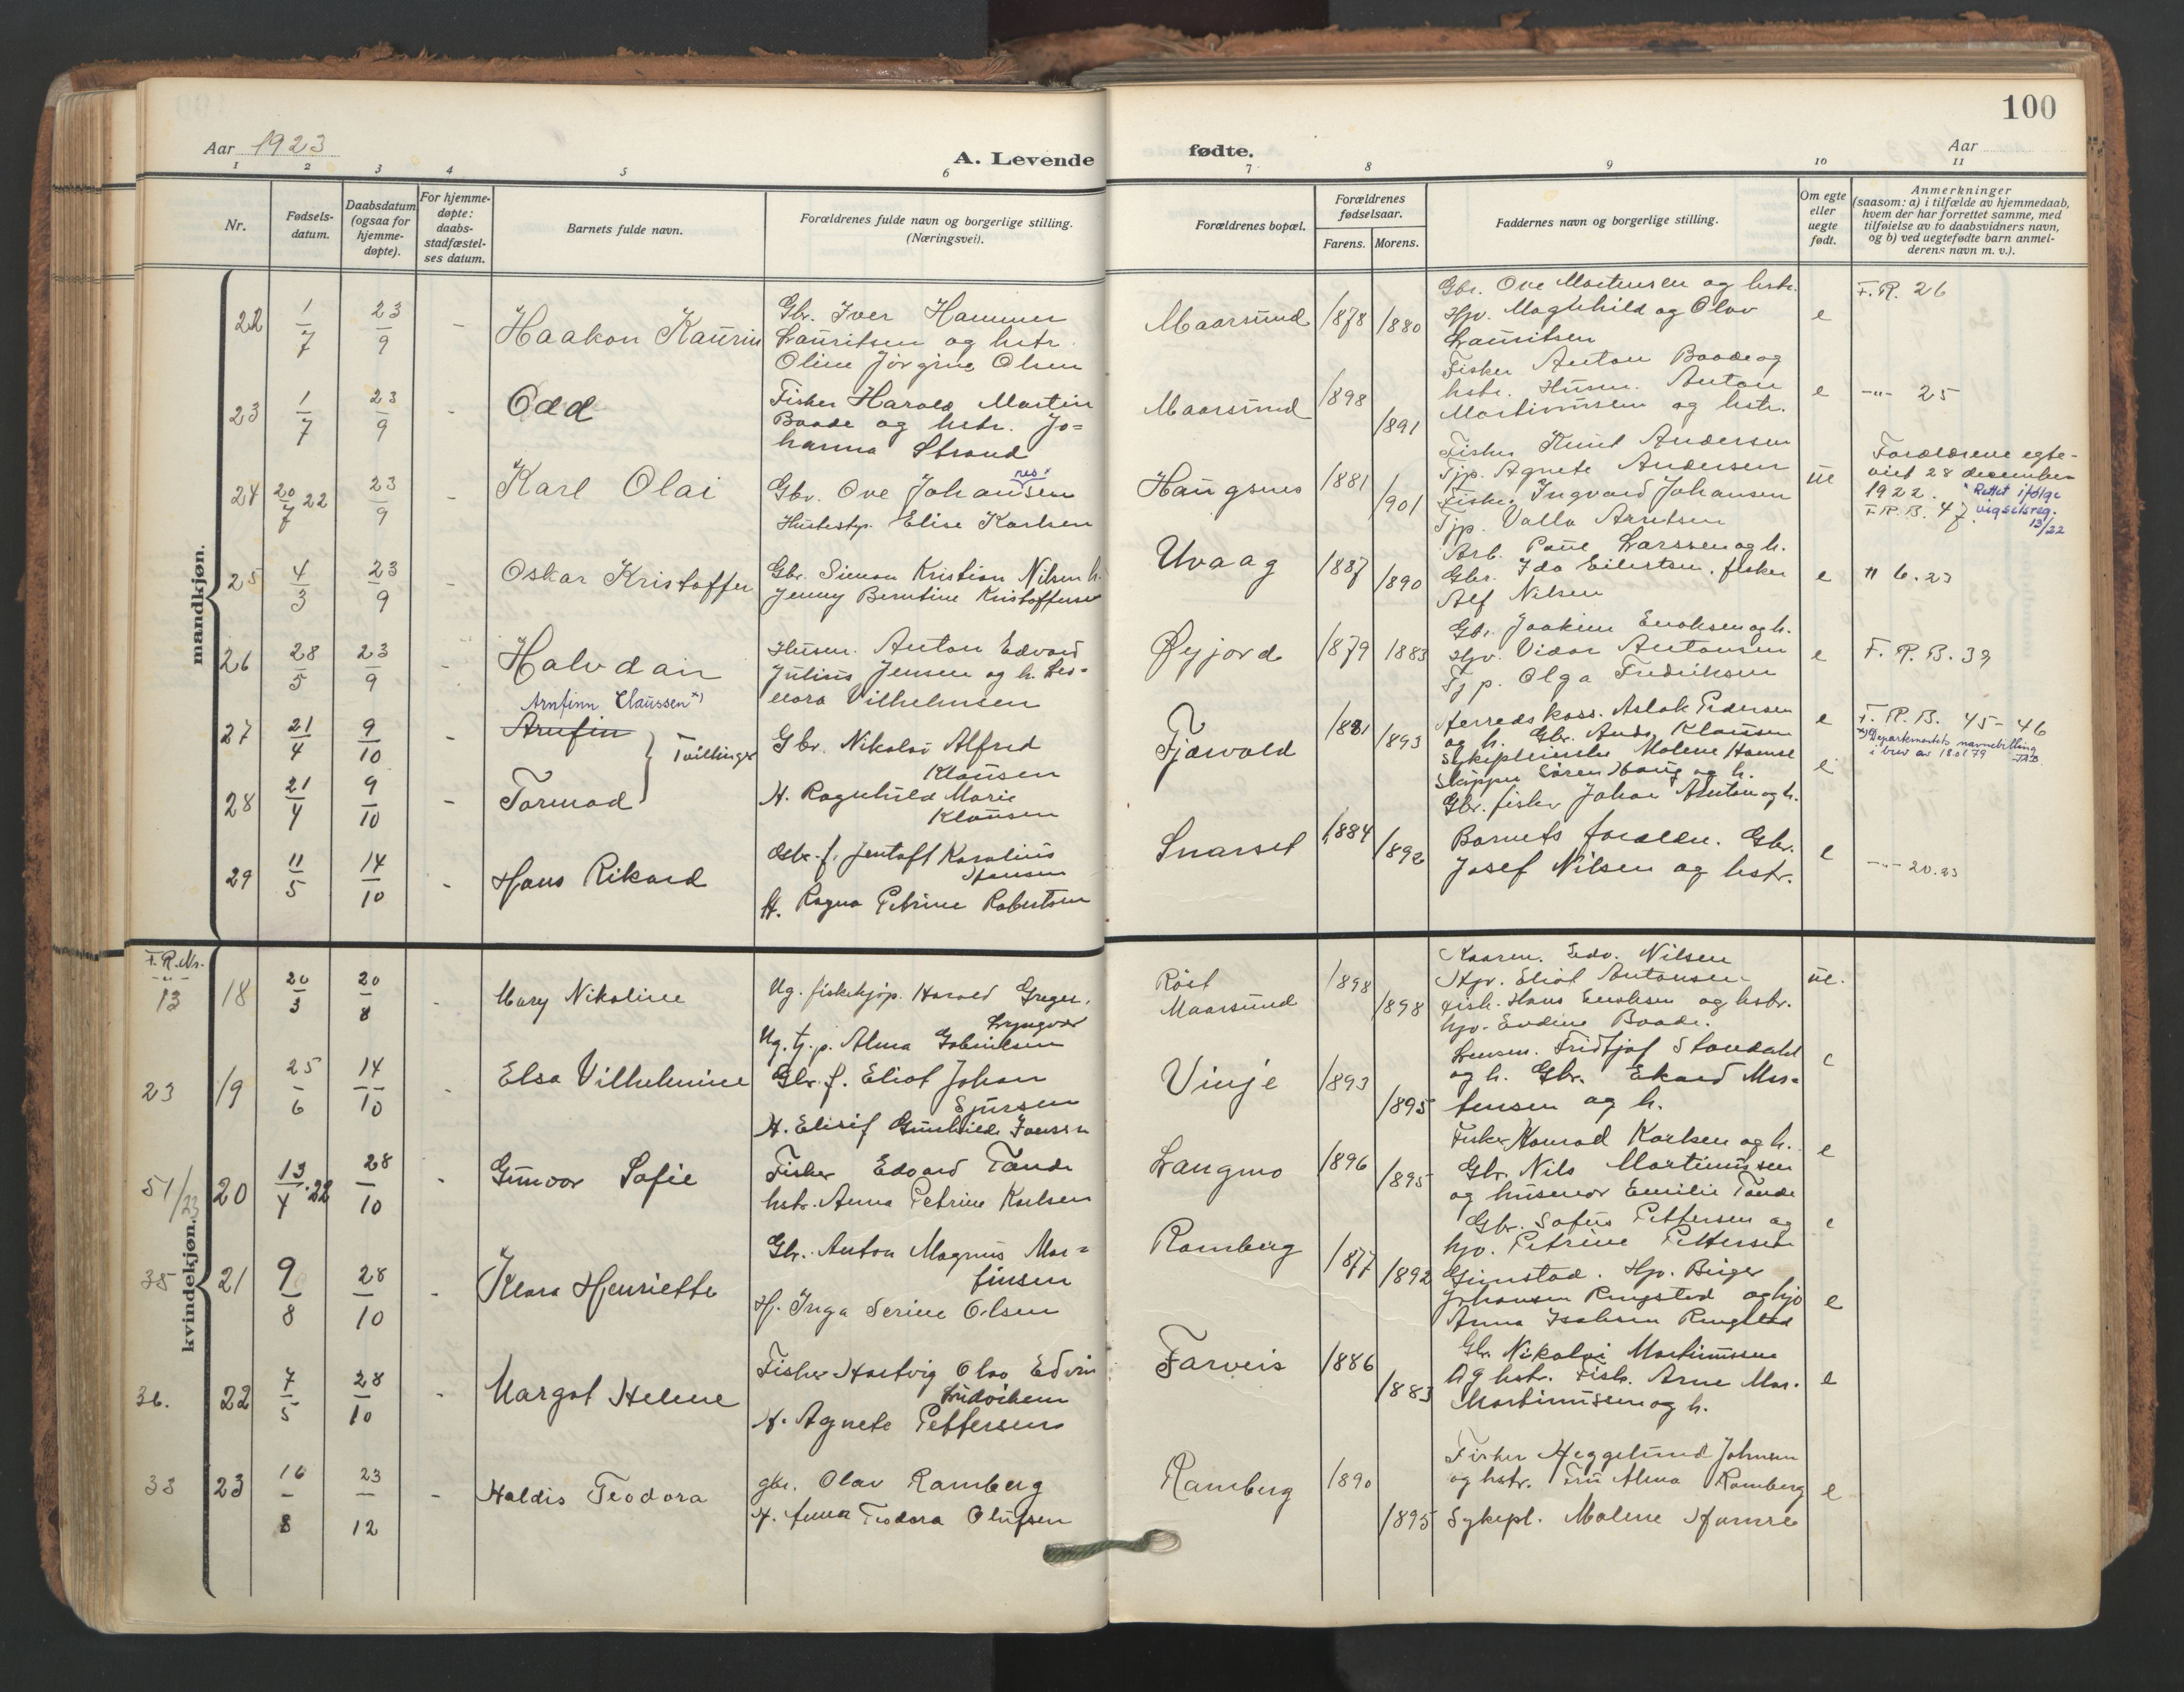 100
Aar 1923
A. Levende fødte.
Aar
1 2 3 4 5 6 7 8 9 10 11
Nr.
Fødsels-
datum.
Daabsdatum
(ogsaa for
hjemme-
døpte).
For hjemme-
døpte:
daabs-
stadfæstel-
ses datum.
Barnets fulde navn.
Forældrenes fulde navn og borgerlige stilling.
(Næringsvei).
Forældrenes bopæl.
Forældrenes
fødselsaar.
Farens. Morens.
Faddernes navn og borgerlige stilling.
Om egte
eller
uegte
født.
Anmerkninger
(saasom: a) i tilfælde av hjemmedaab,
hvem der har forrettet samme, med
tilføielse av to daabsvidners navn,
og b) ved uegtefødte barn anmel-
derens navn m. v.).
mandkjøn.
22 1/7 23/9 - Haakon Kaurin
Gbr. Iver Hammer
Lauritsen og hstr.
Oline Jørgine Olsen
Maarsund 1878 1880
Gbr. Ove Martinsen og hstr.
Hjv. Magnhild og Olav
Lauritsen
e
F.R. 26
23 1/7 23/9 - Odd
Fisker Harald Martin
Baade og hstr. Jo=
hanna Strand
Maarsund 1898 1891
Fisker Anton Baade og
hstr. Husm. Anton
Martinussen og hstr.
e
-"- 25
24 20/7 22 23/9 - Karl Olai
Gbr. Ove Johansen
nes
Husbestyr. Elise Karlsen
Haugsnes 1881 1901
Fisker Knut Andersen
Tjp. Agnete Andersen
Fisker Ingvard Johansen
Tjp. Valla Arntsen
ue
Forældrene egte-
viet 28 december
1922. Rettet ifølge
F.R.B. 47 vigselsreg.
13/22
25 4/3 23/9 - Oskar Kristoffer
Gbr. Simon Kristian Nilsen h.
Jenny Berntine Kristoffersen
Uvaag 1887 1890
Arb. Paul Larssen og h.
Gbr. Ida Eilertsen, fisker
Alf Nilsen
e
" 6.23
26 28/5 23/9 - Halvdan
Husm. Anton Edvard
Julius Jensen og h. Leo=
nora Vilhelmsen
Øyjord 1879 1883
Gbr. Joakim Enoksen og h.
Hjv. Vidar Antonsen
Tjp. Olga Fredriksen
e
F.R.B. 39
Arnfinn Claussen x)
27 21/4 9/10 - Arnfin
} Tvillinger
Gbr. Nikolai Alfred
Klausen
Fjærvold 1881 1893
Herredskass. Aslak Pedersen
og h. Gbr. Ands Klausen
Sykepleierske Molene Hamre
e
F.R.B. 45-46
x) Departementets navnebevilling
i brev av 18.01.79
28 21/4 9/10 - Tormod
H. Ragnhild Marie
Klausen
Skipper Søren Haug og h.
Gbr. fisker Johan Anton og h.
e
29 11/5 14/10 - Hans Rikard
Gbr. f. Jentoft Karolius
Hansen
H. Ragna Petrine Robertsen
Snarset 1884 1892
Barnets forældre. Gbr.
Josef Nilsen og hstr.
e
-"- 20.23
kvindekjøn.
F.R.Nr.
-"-
13 18 20/3 20/8 - Mary Nikoline
Ug. fiskekjøp. Harald Greger.
Lyngvær
Ug. tj.p. Alma Gabrielsen
Røst
Maarsund 1898 1898
Kaarem. Edv. Nilsen
Hjv. Eliot Antonsen
Fisk. Hans Enoksen og hstr.
hjv. Evdine Baade.
ue.
23 19 25/6 14/10 - Elsa Vilhelmine
Gbr. f. Eliot Johan
Sjursen
H. Elisif Gunhilde Jensen
Vinje 1893 1895
Lensm. Fridtjof Slovdahl
og h. Gbr. Ekard Mor=
tensen og h.
e
51/23 20 13/4.22 28/10 - Gunvor Sofie
Fisker Edvard Tande
hstr. Anna Petrine Karlsen
Langmo 1896 1895
Fisker Konrad Karlsen og h.
Gbr. Nils Martinussen
og husmor Emilie Tande
e
35 21 9/8 28/10 - Klara Henriette
Gbr. Anton Magnus Mar=
tinsen
H. Inga Serine Olsen
Ramberg 1877 1892
Gbr. Sofus Pettersen og
hjv. Petrine Pettersen
Grimstad. Hjv. Birger
Johansen Ringstad og hjv
Anna Isaksen Ringstad
e
e
36. 22 7/5 28/10 - Margot Helene
Fisker Hartvig Olao Edvin
Ludviksen
H. Agnete Pettersen
Farveis 1886 1883
Gbr. Nikolai Martinussen
og hstr. Fisk. Arne Mar.
Martinussen og h.
e
33 23 16/8 23/12 - Haldis Teodora
gbr. Olav Ramberg
H. Anna Teodora Olufsen
Ramberg 1890 1895
Fisker Heggelund Johnsen
og hstr. Fru Alma Ramberg
Sykepl. Molene Hamre
e